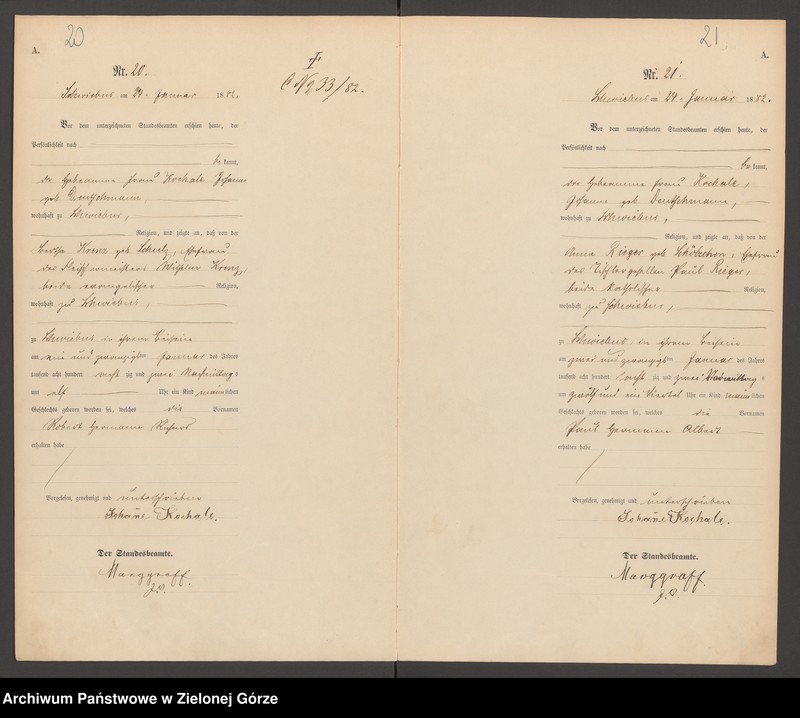 20
A.
Nr. 20.
Schwiebus am 24. Januar 1882.
Vor dem unterzeichneten Standesbeamten erschien heute, der
Persönlichkeit nach
be kannt,
die Hebeamme Frau Koschale Johanne
geb Deutschmann,
wohnhaft zu Schwiebus,
Religion, und zeigte an, daß von der
Bertha Krenz geb Scheel, Ehefrau
des Fleischermeisters Wilhelm Krenz,
beide evangelischer Religion,
wohnhaft zu Schwiebus,
zu Schwiebus in ihrem Beisein
am ein und zwanzigsten Januar des Jahres
tausend acht hundert acht zig und zwei Nachmittags
um elf Uhr ein Kind männ lichen
Geschlechts geboren worden sei, welches die Vornamen
Robert Hermann
erhalten habe
Vorgelesen, genehmigt und unterschrieben
Johane Koschale.
Der Standesbeamte.
Marggraff.
†
C No 33/82.
21
A.
Nr. 21.
Schwiebus am 24. Januar 1882.
Vor dem unterzeichneten Standesbeamten erschien heute, der
Persönlichkeit nach
be kannt,
die Hebeamme Frau Koschale,
Johanne geb Deutschmann,
wohnhaft zu Schwiebus,
Religion, und zeigte an, daß von der
Anna Rieger geb Ehefrau
des Tischlergesellen Paul Rieger,
beide katholischer Religion,
wohnhaft zu Schwiebus,
zu Schwiebus, in ihrem Beisein
am zwei und zwanzigsten Januar des Jahres
tausend acht hundert acht zig und zwei
um zwölf und ein Viertel Uhr ein Kind männ lichen
Geschlechts geboren worden sei, welches die Vornamen
Paul Hermann Albert
erhalten habe
Vorgelesen, genehmigt und unterschrieben
Johane Koschale.
Der Standesbeamte.
Marggraff.
Archiwum Państwowe w Zielonej Górze